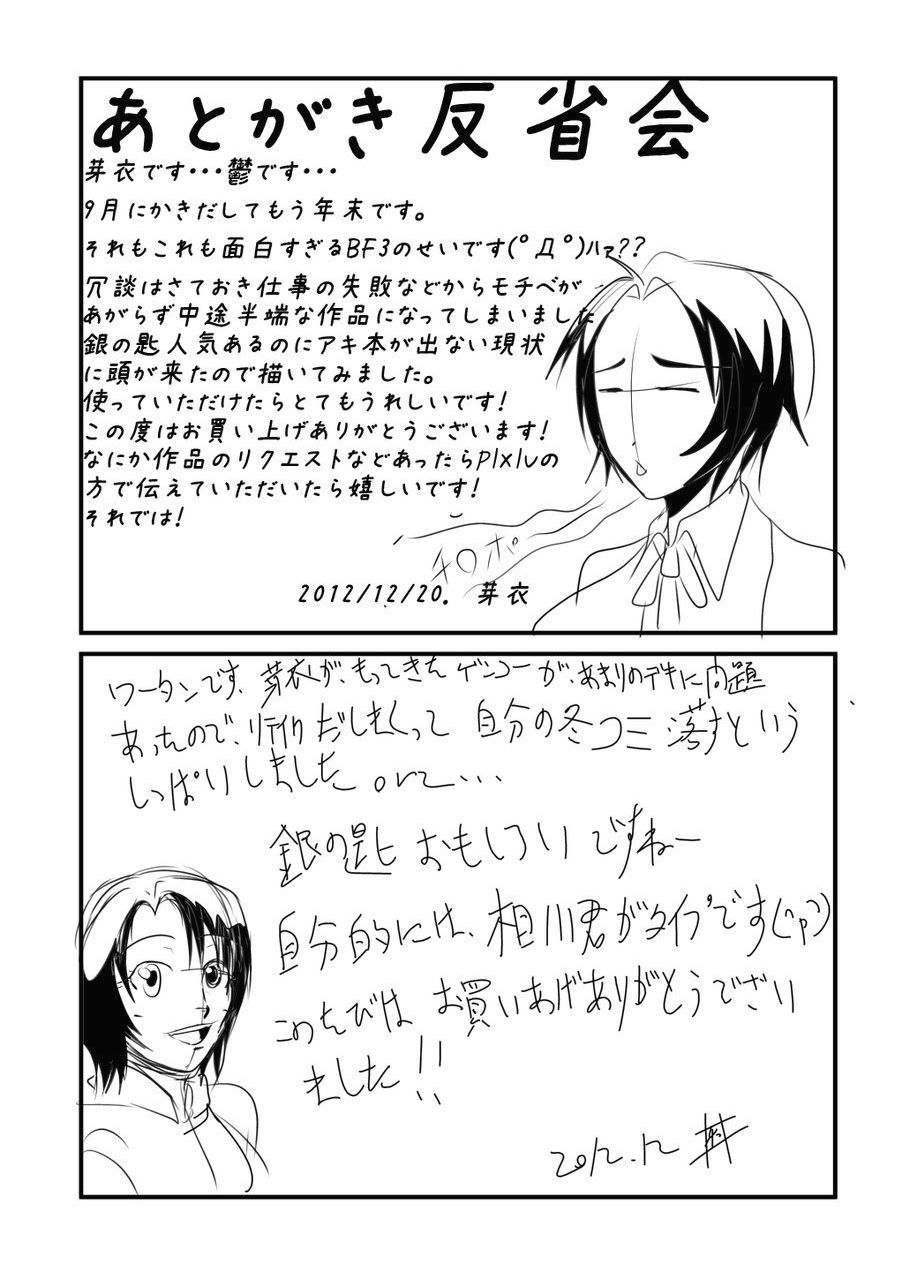 あとがき反省会
芽衣です・・・鬱です・・・
9月にかきだしてもう年末です。
それもこれも面白すぎるBF3のせいです(ﾟДﾟ)ﾊｧ??
冗談はさておき仕事の失敗などからモチベが
あがらず中途半端な作品になってしまいました
銀の匙人気あるのにアキ本が出ない現状
に頭が来たので描いてみました。
使っていただけたらとてもうれしいです!
この度はお買い上げありがとうございます!
なにか作品のリクエストなどあったらPIxIvの
方で伝えていただいたら嬉しいです!
それでは!
チロポ
2012/12/20. 芽衣
ワータンです、芽衣が、もってきたゲンコーが、あまりのデキに問題
あったので、リテイクだしまくって 自分の冬コミ落すという
しっぱいしました orz...
銀の匙 おもしろい ですねー
自分的には、相川君がタイプです
このたびは お買いあげありがとうござい
ました!!
2012.12